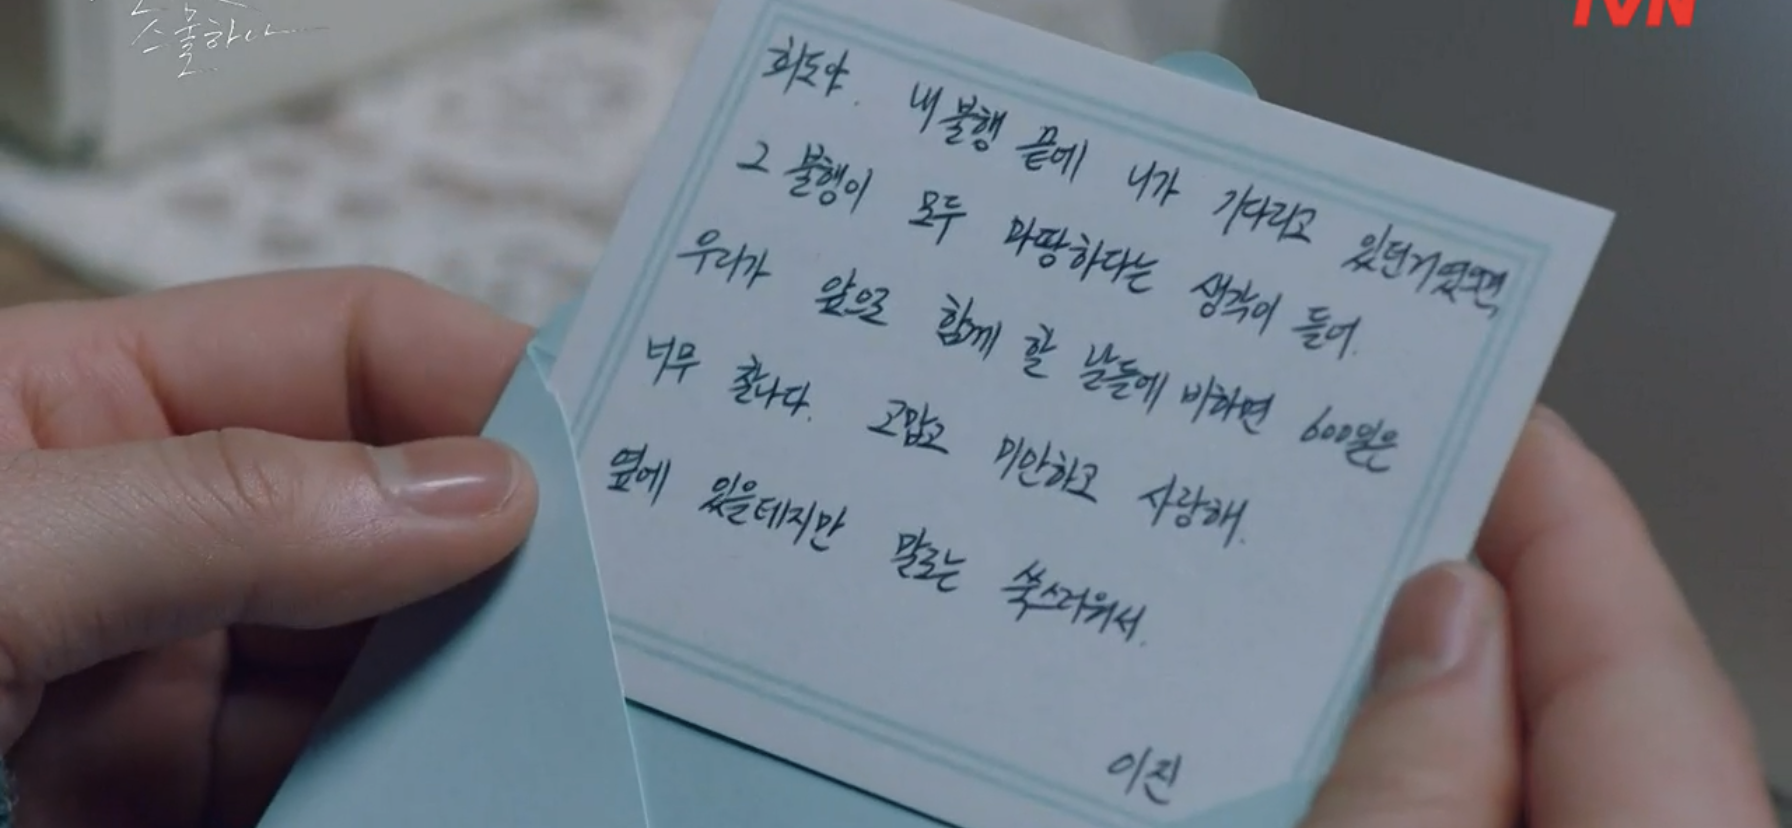 스물하나
tvN
희도야. 내 불행 끝에 니가 기다리고 있던거였으면,
그 불행이 모두 마땅하다는 생각이 들어.
우리가 앞으로 함께 할 날들에 비하면 600일은
너무 찰나다. 고맙고 미안하고 사랑해.
옆에 있을테지만 말로는 쑥스러워서.
이진